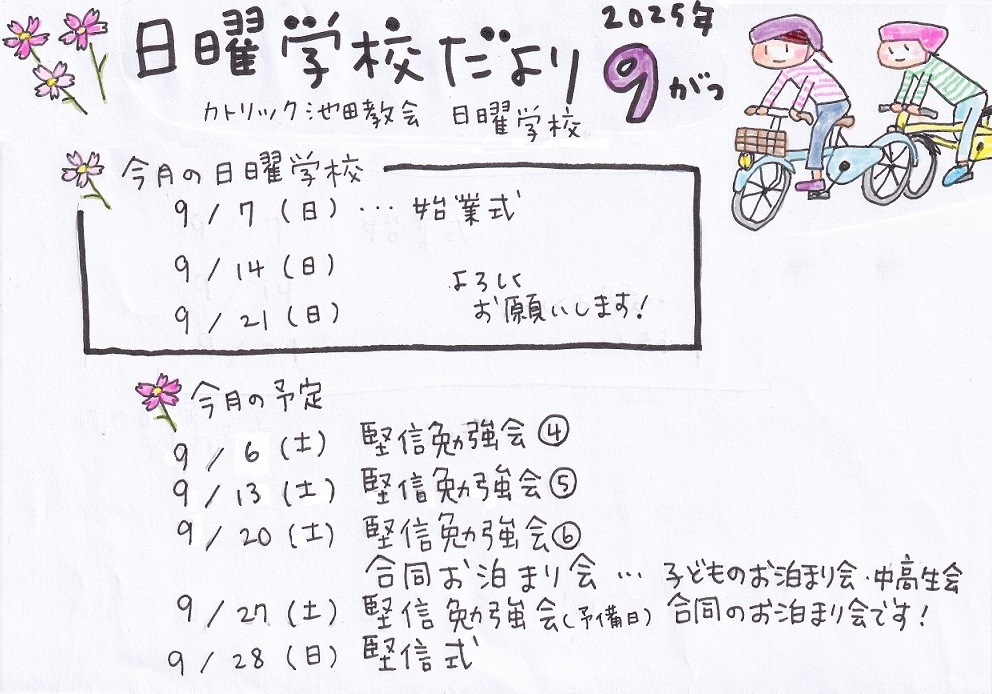 日曜学校だより 2025年 9がつ
カトリック池田教会 日曜学校
今月の日曜学校
9/7(日)… 始業式
9/14(日)
よろしく
9/21(日) お願いします!
今月の予定
9/6(土) 堅信勉強会④
9/13(土) 堅信勉強会⑤
9/20(土) 堅信勉強会⑥
合同お泊まり会 … 子どものお泊まり会・中高生会
合同のお泊まり会です!
9/27(土) 堅信勉強会(予備日)
9/28(日) 堅信式